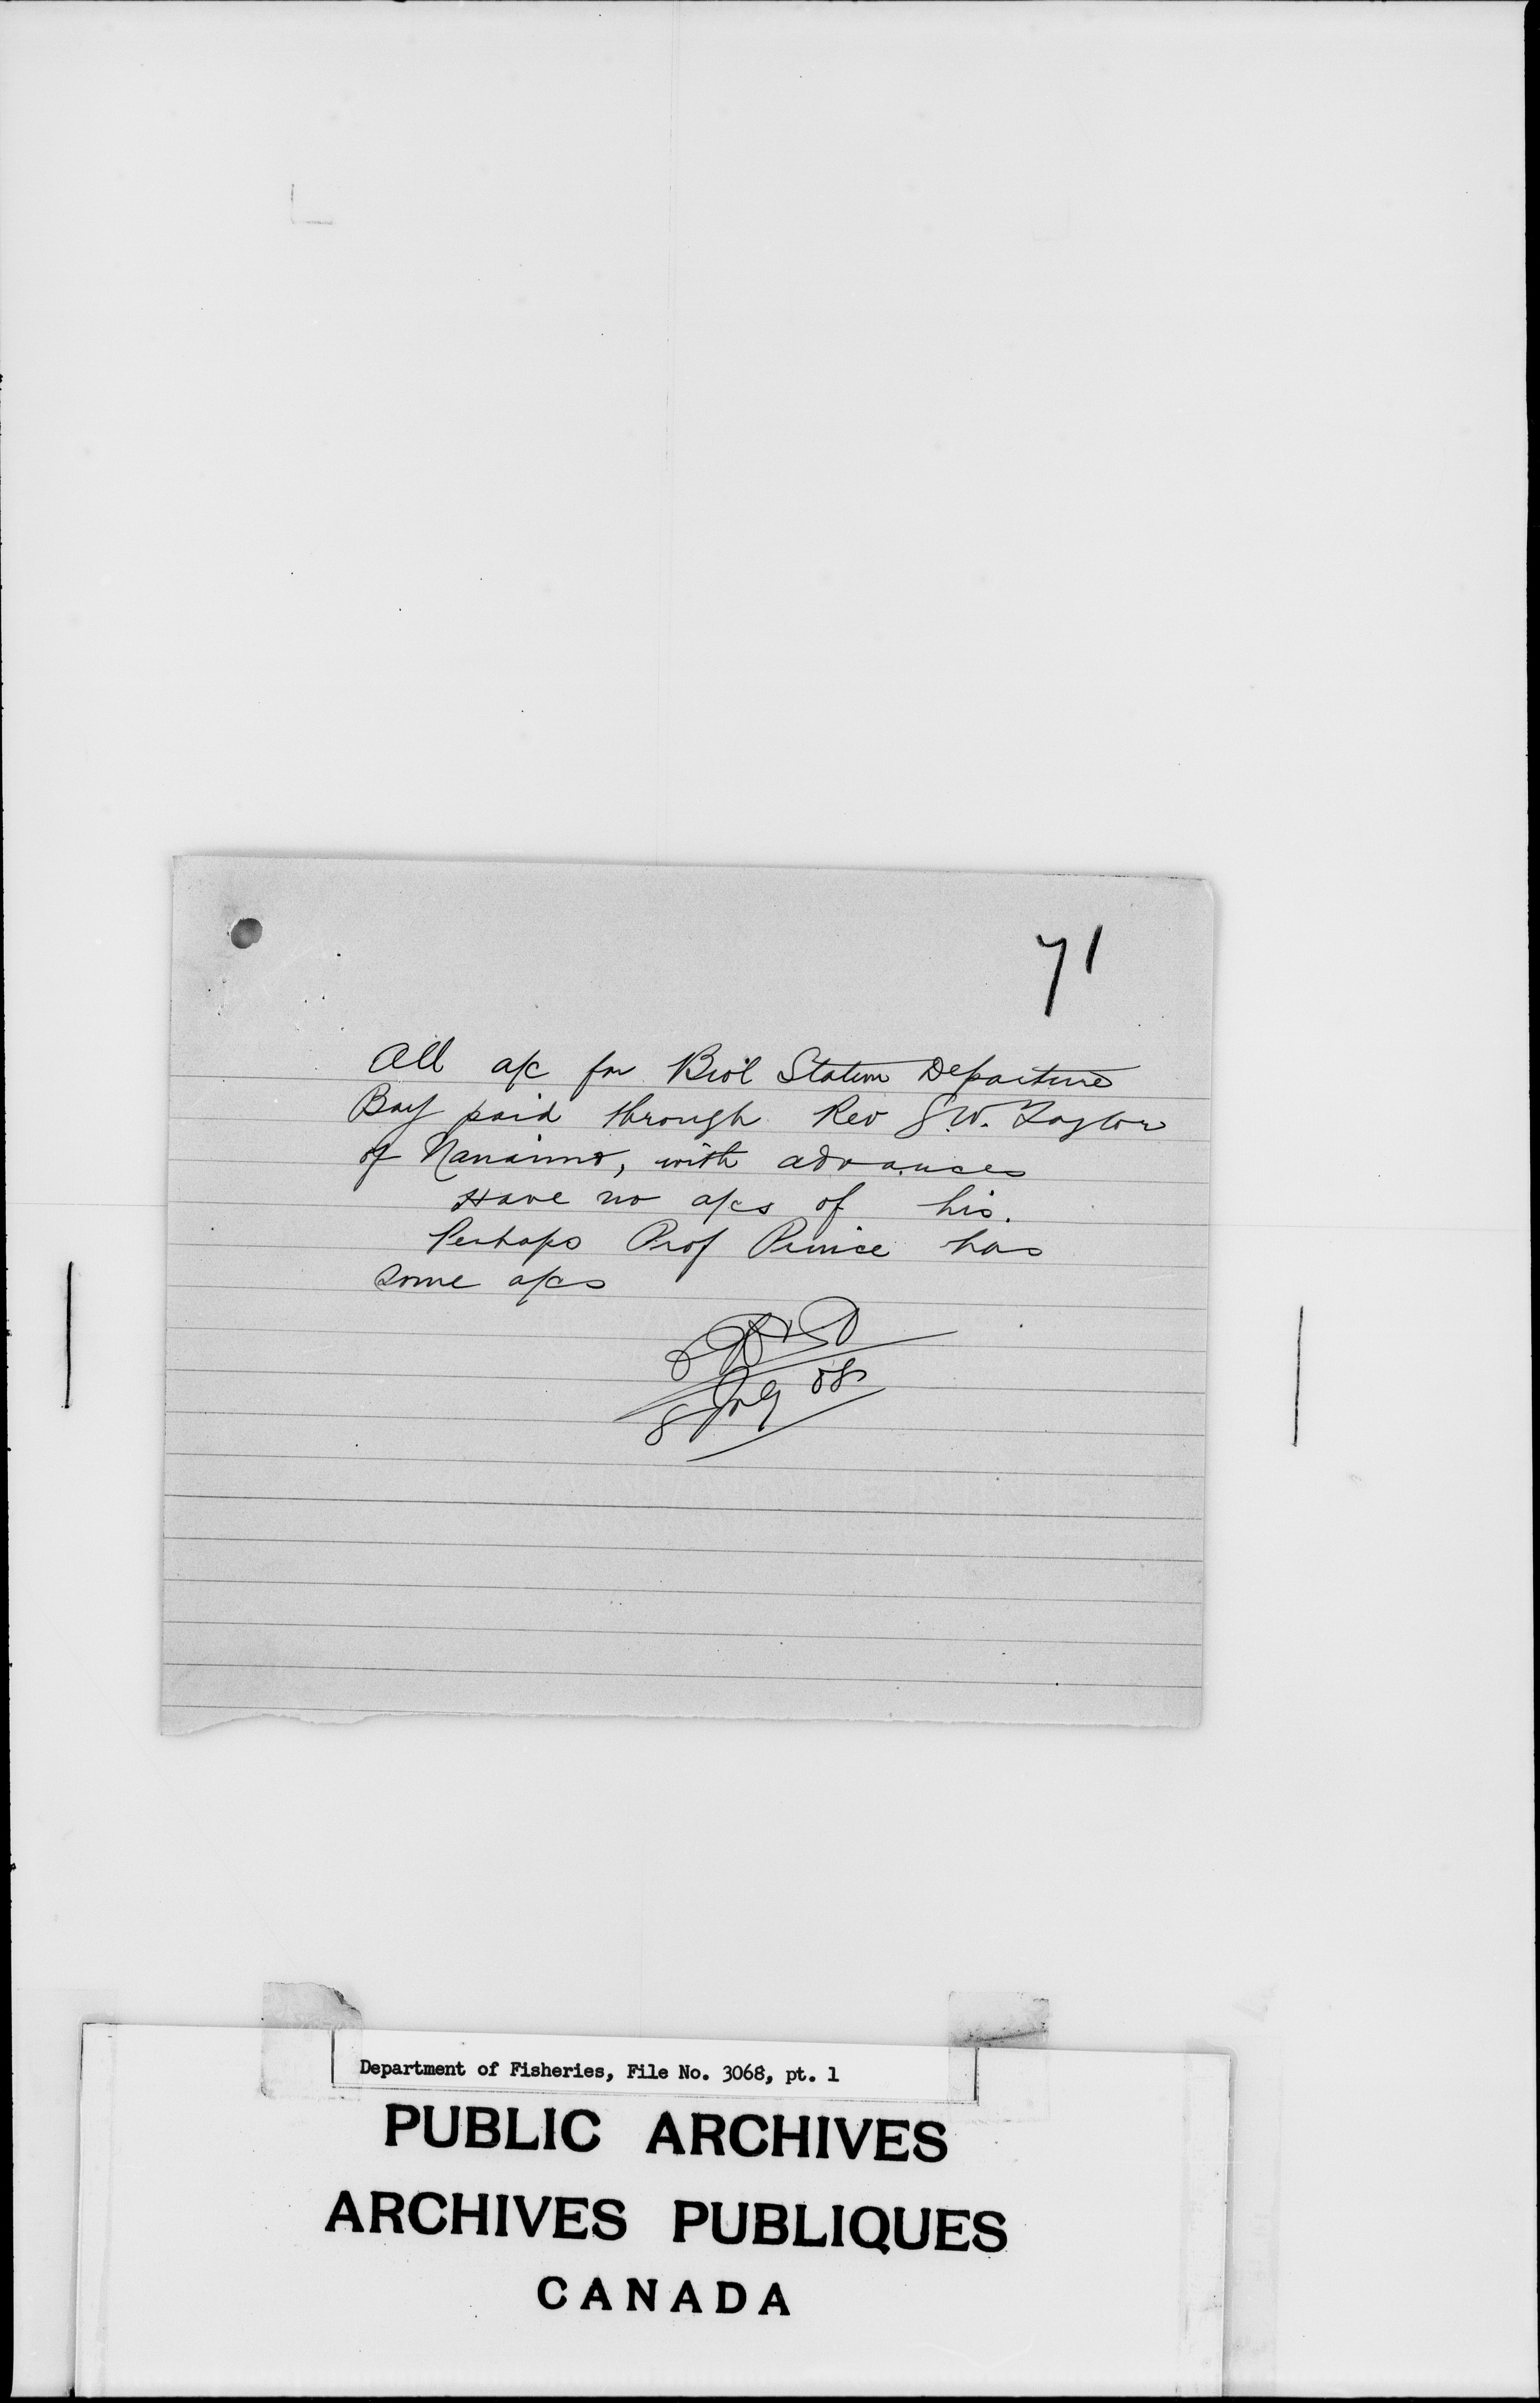 71
All a/c for Biol Station Departure
Bay paid through Rev G.W. Taylor
of Nanaimo, with advances
Have no a/cs of his.
Perhaps Prof Prince has
some a/cs
8 08
Department of Fisheries, File No. 3068, pt. 1
PUBLIC ARCHIVES
ARCHIVES PUBLIQUES
CANADA